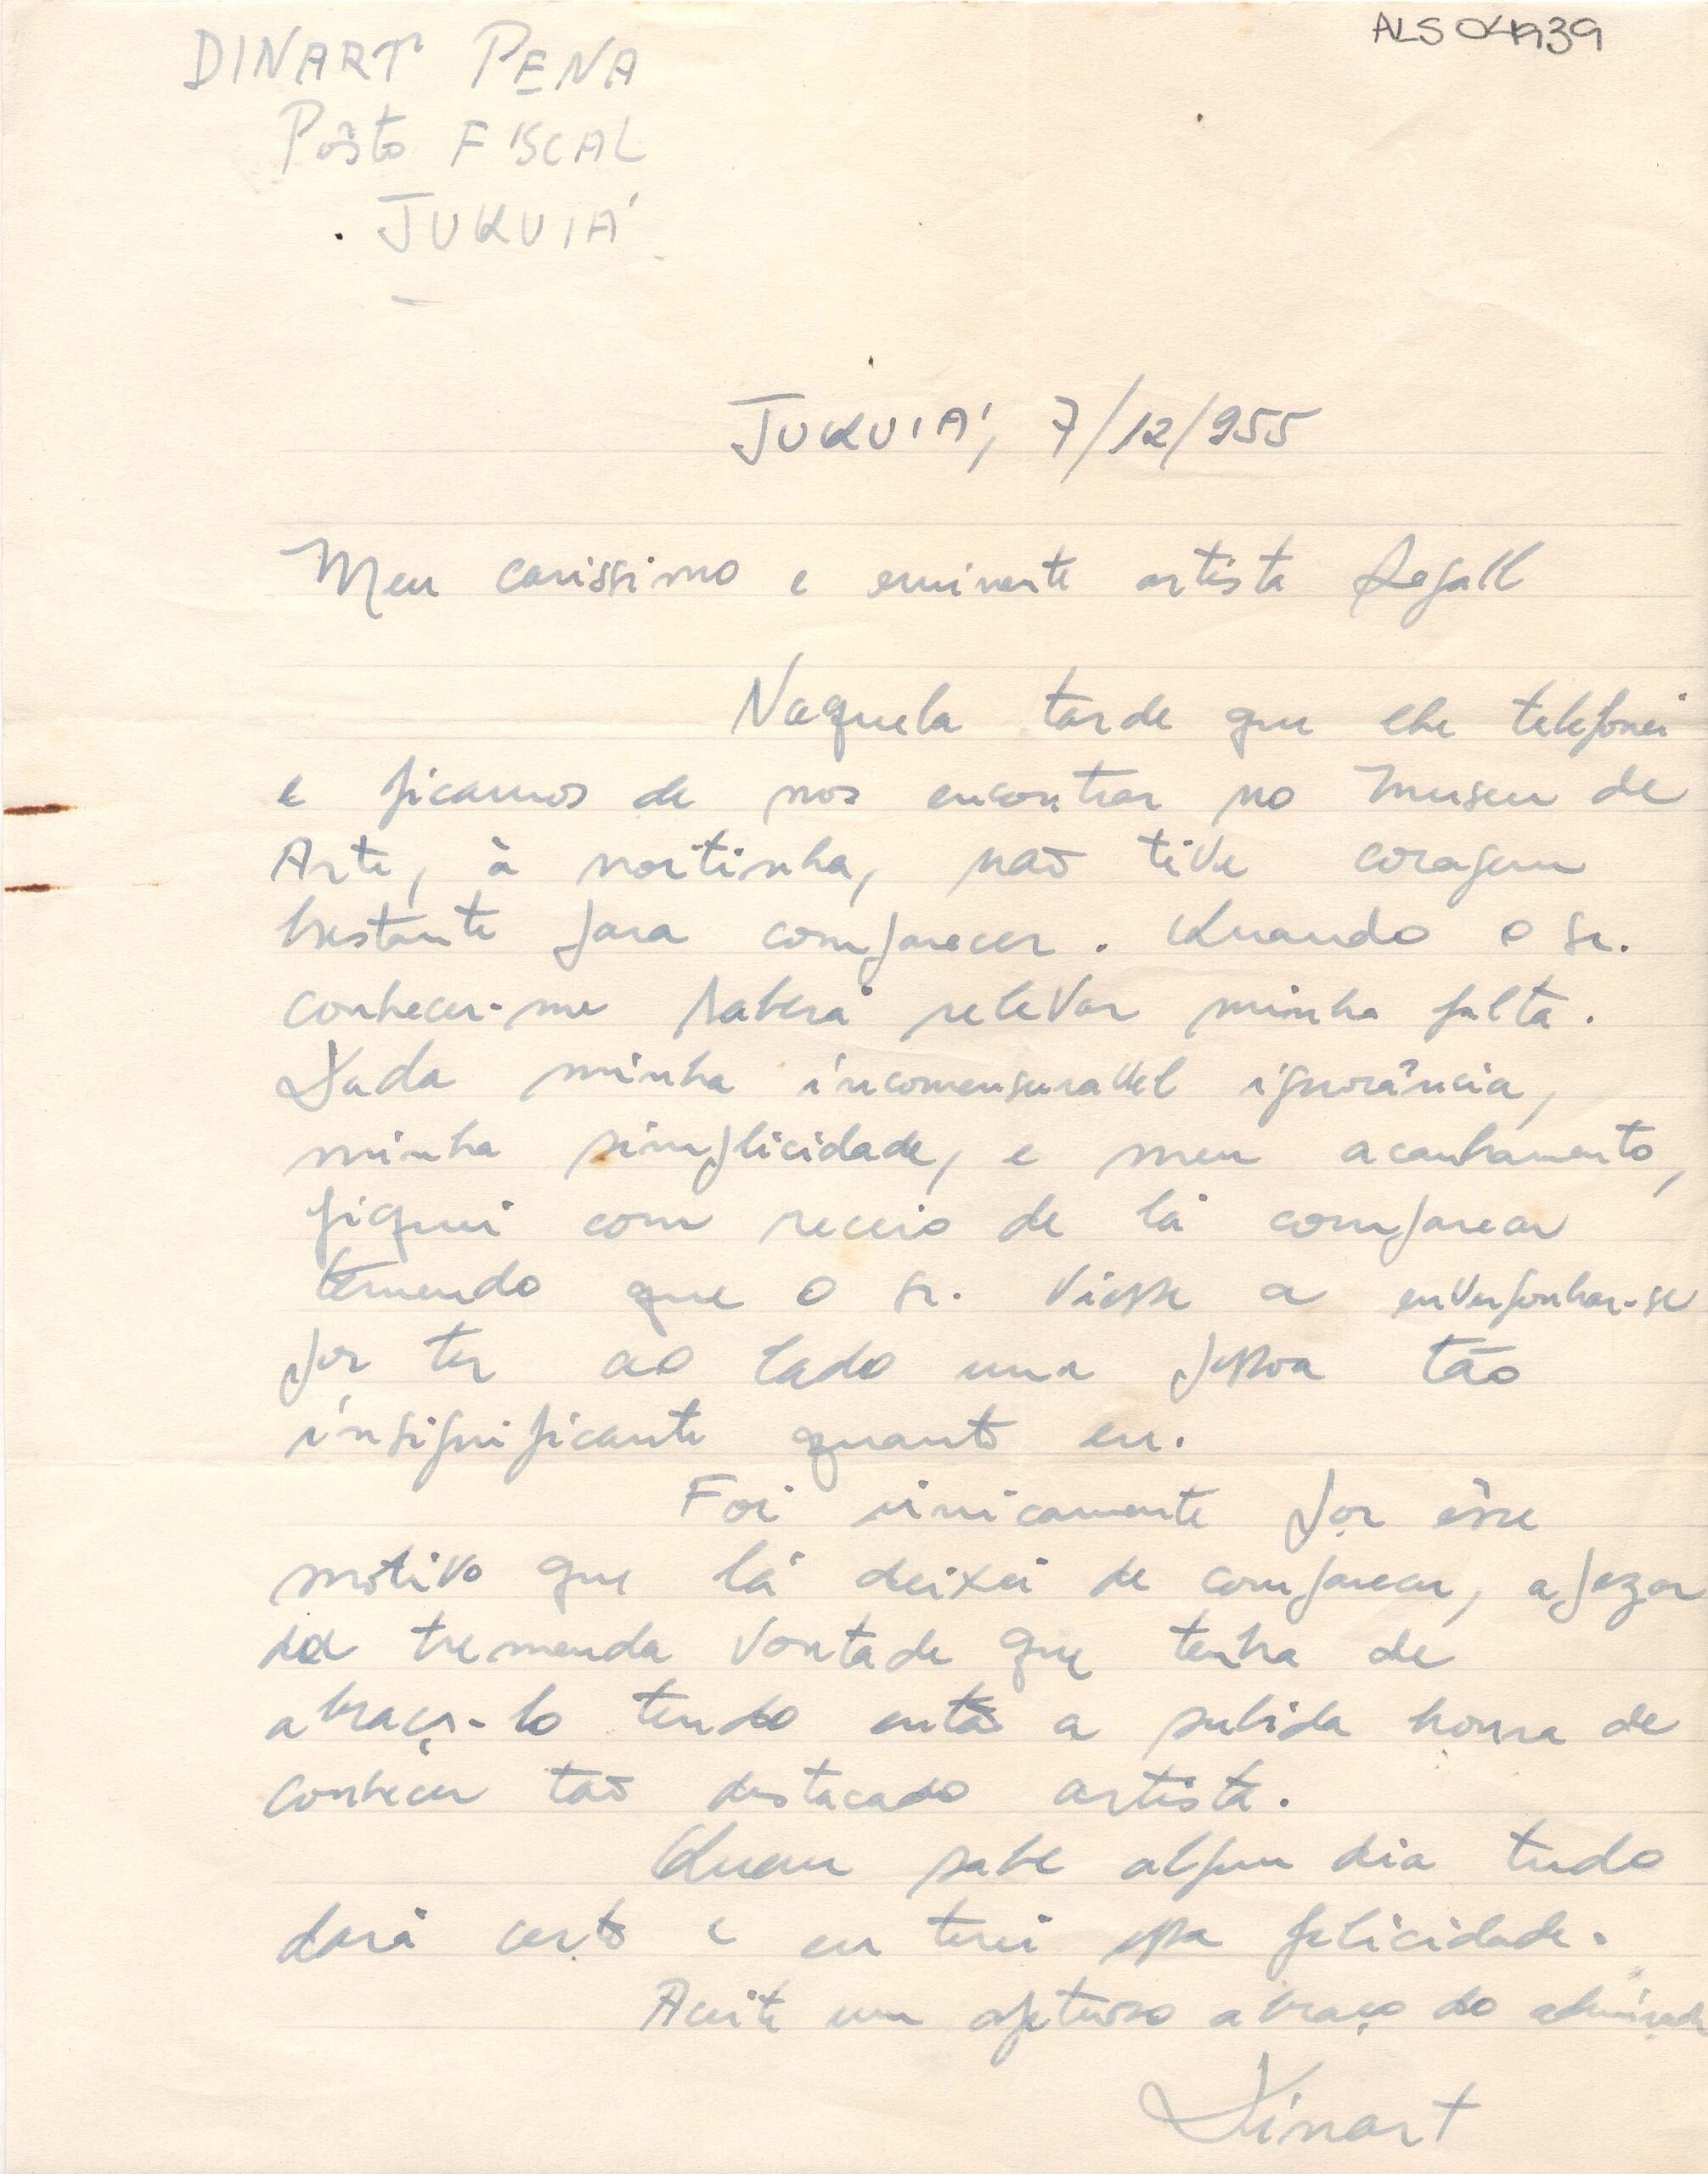 ALS 04939
DINART PENA
Pôsto FISCAL
JUKUIÁ
JUKUIÁ, 7/12/955
Meu carissimo e eminente artista Segall
Naquela tarde que lhe telefonei
e ficamos de nos encontrar no Museu de
Arte, à noitinha, não tive coragem
bastante para comparecer. Quando o sr.
conhecer-me saberá relevar minha falta.
Dada minha incomensuravel ignorância,
minha simplicidade, e meu acanhamento,
fiquei com receio de lá comparecer
temendo que o sr. viesse a envergonhar-se
por ter ao lado uma pessoa tão
insignificante quanto eu.
Foi únicamente por êsse
motivo que lá deixei de comparecer, apezar
da tremenda vontade que tenha de
abraça-lo tendo então a subida honra de
conhecer tão destacado artista.
Quem sabe algum dia tudo
dará certo e eu terei essa felicidade.
Aceite um afetuoso abraço do
Dinart